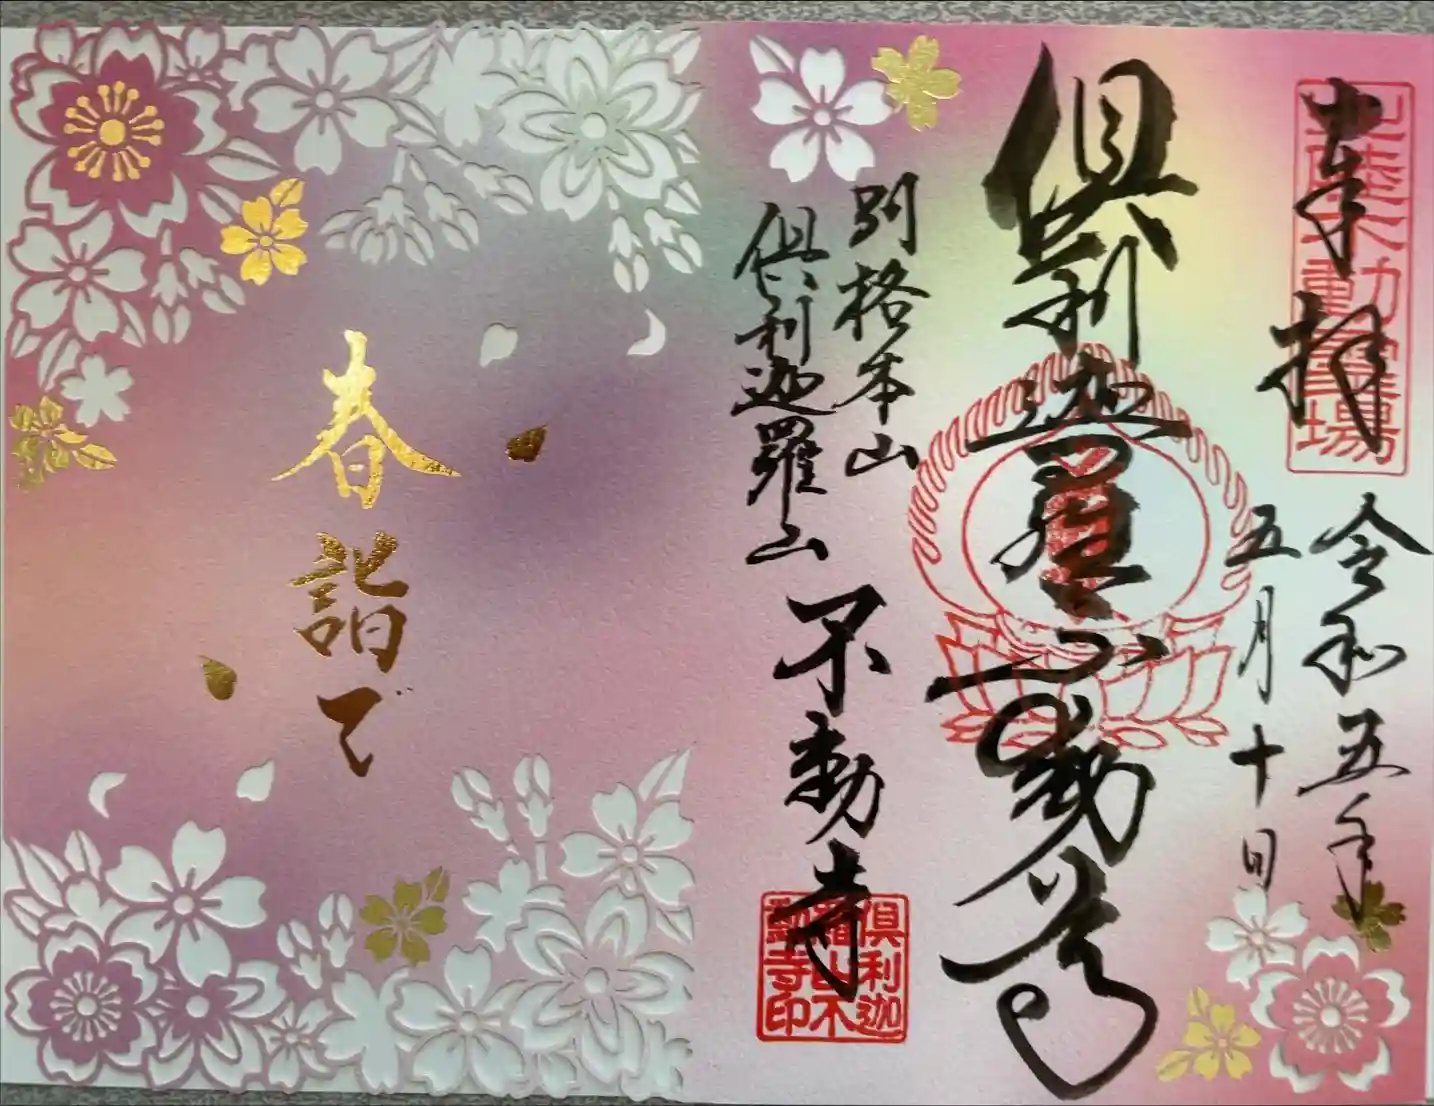 奉拝
令和五年
五月十日
倶利迦羅不動尊
別格本山
倶利迦羅山
不動寺
倶利迦羅山不動寺印
春詣で